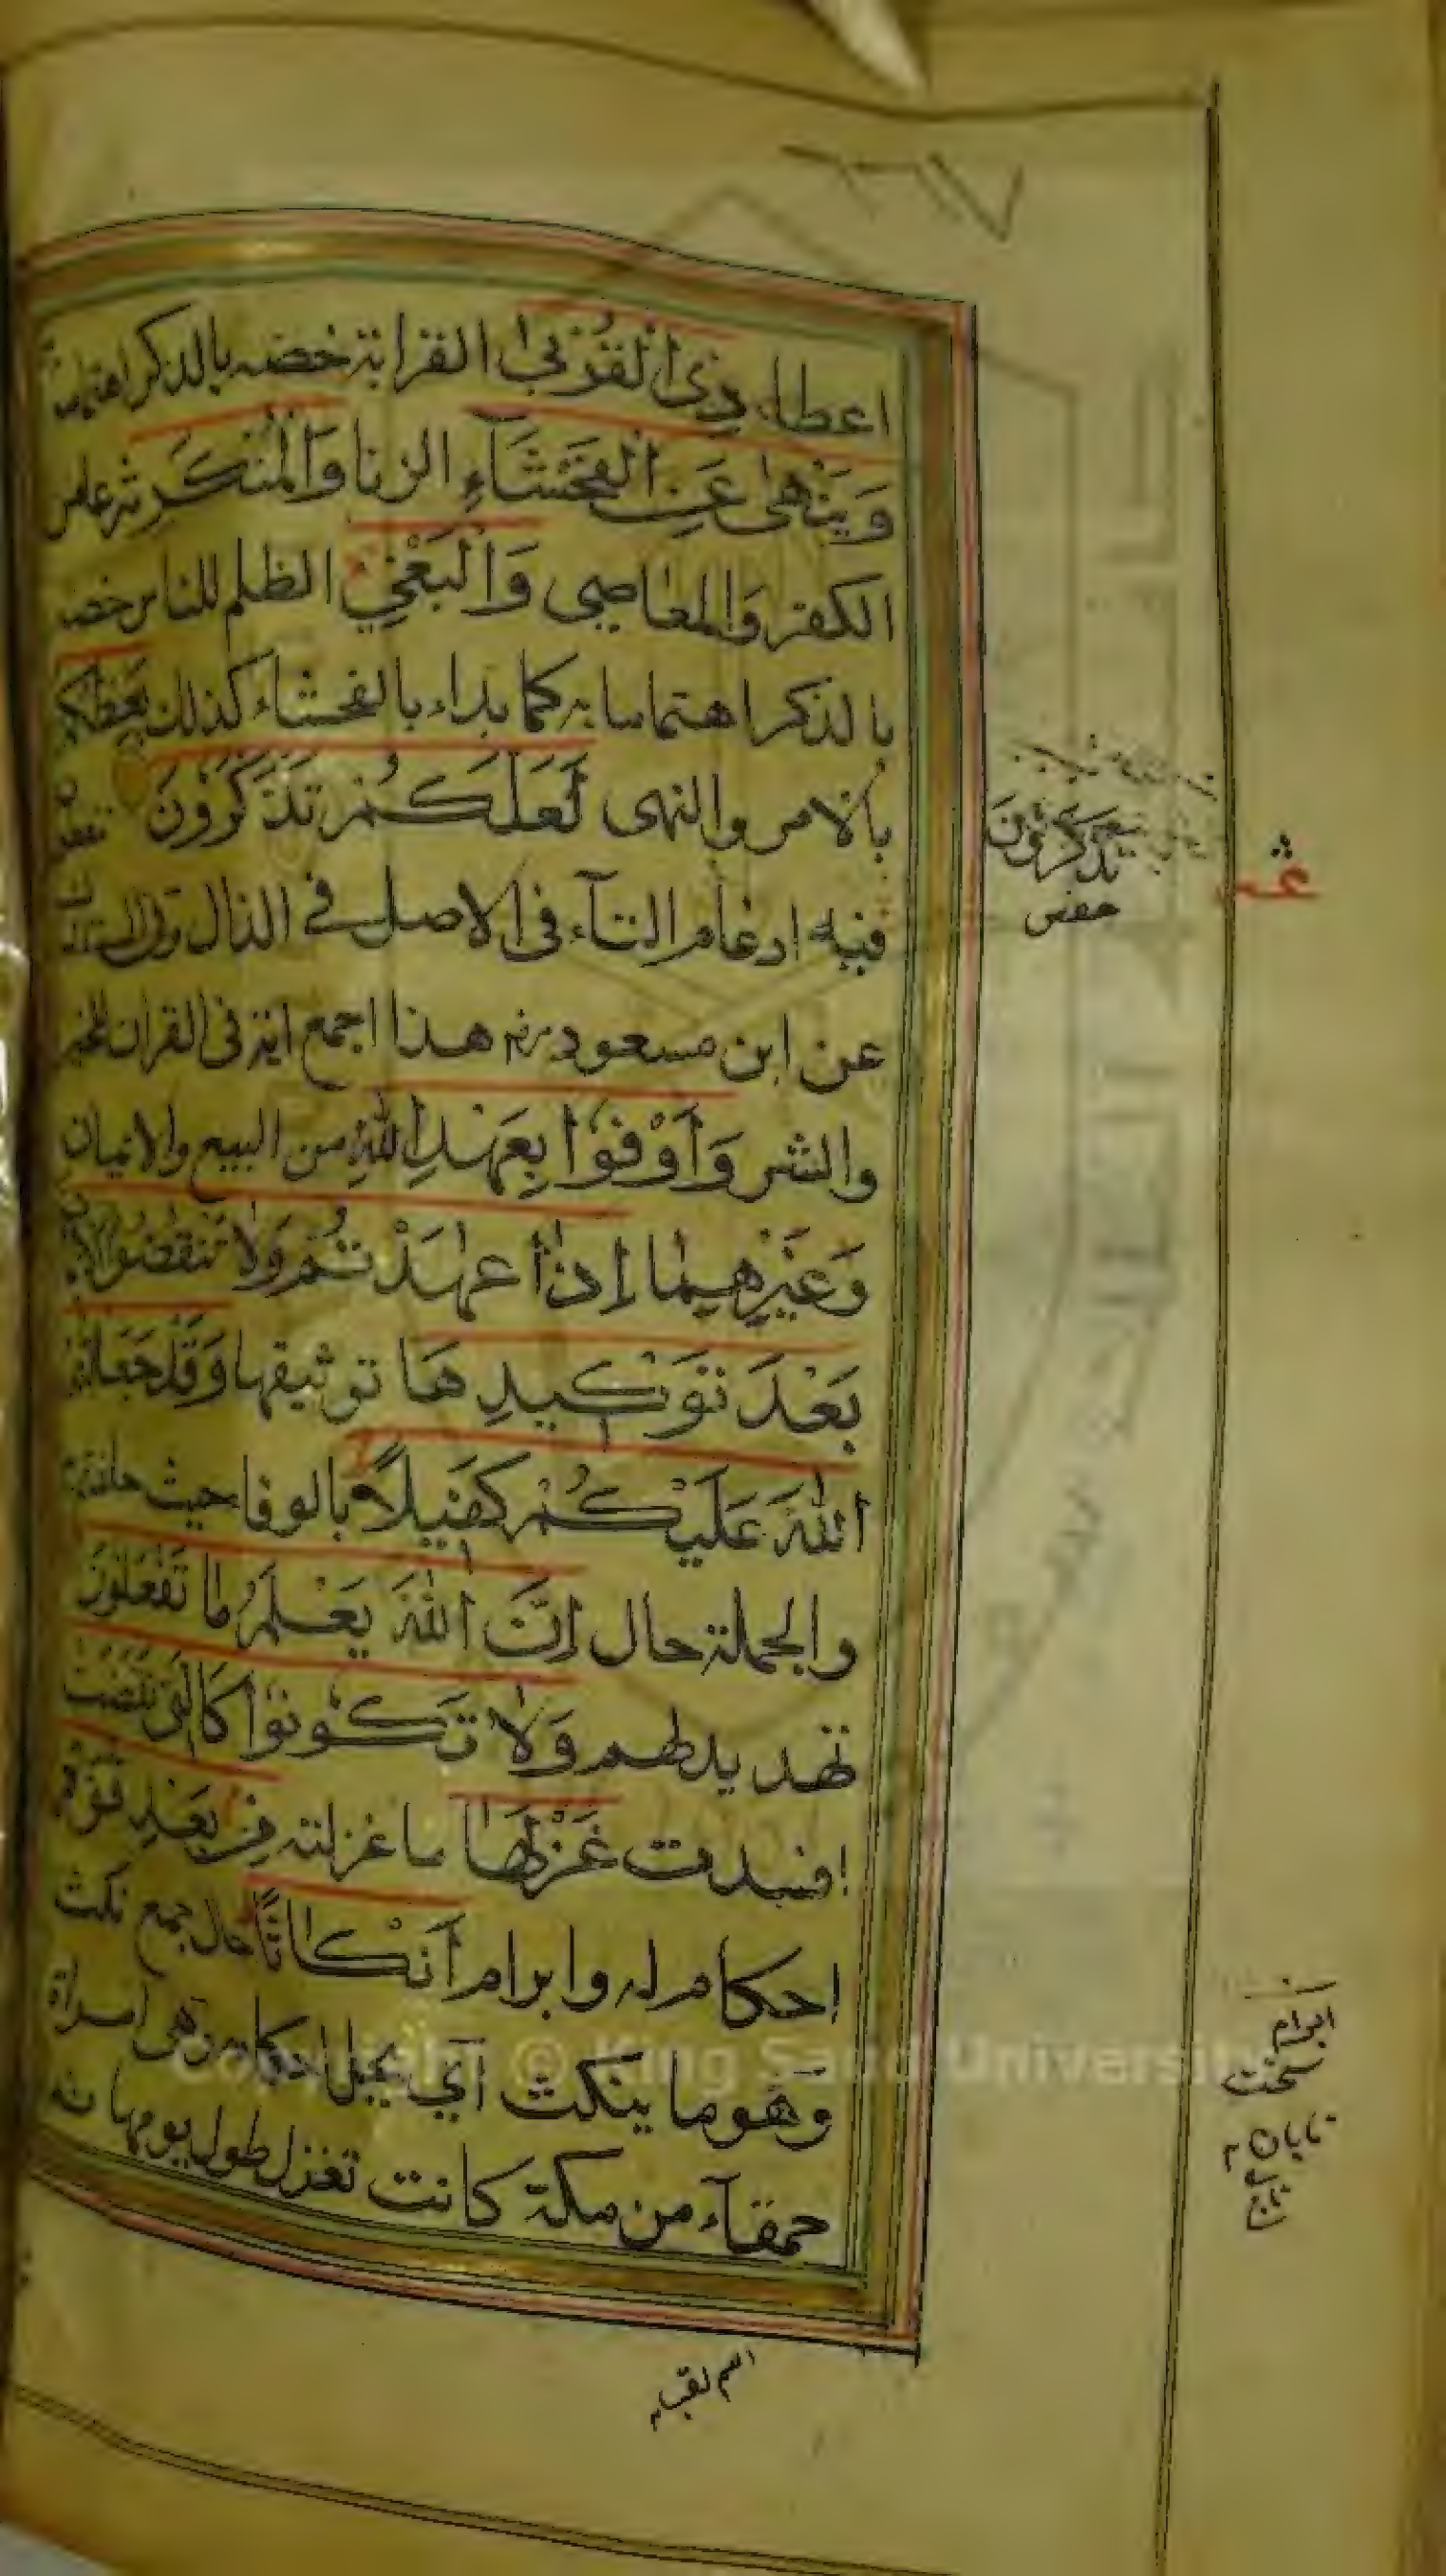 اعطاء ذِى الْقُرْبٰى القرابة خصه بالذكر اهتماما
وَيَنْهٰى عَنِ الْفَحْشَآءِ الزنا وَالْمُنْكَرِ شرعا من
الكفر والمعاصى وَالْبَغْيِ الظلم للناس خصه
بالذكر اهتماما به كما بداء بالفحشاء كذلك يَعِظُكُمْ
بالامر والنهى لَعَلَّكُمْ تَذَّكَّرُونَ
فيه ادغام التآء فى الاصل فى الذال
عن ابن مسعود رضـ هذا اجمع اية فى القران للخير
والشر وَاَوْفُوا بِعَهْدِ اللّٰهِ من البيع والايمان
وغيرهما اِذَا عٰهَدْتُمْ وَلَا تَنْقُضُوا
بَعْدَ تَوْكِيدِهَا توثيقها وَقَدْ جَعَلْتُمُ
اللّٰهَ عَلَيْكُمْ كَفِيلًا بالوفا حيث حلفتم
والجملة حال اِنَّ اللّٰهَ يَعْلَمُ مَا تَفْعَلُونَ
تهديد لهم وَلَا تَكُونُوا كَالَّتِى نَقَضَتْ
افسدت غَزْلَهَا ما غزلته مِنْ بَعْدِ قُوَّةٍ
احكام له وابرام اَنْكَاثًا حال جمع نكث
وهو ما ينكث اي يحل احكامه وهى امراة
حمقآء من مكة كانت تغزل طول يومها ثم
تذكرون
حفص
ابرام
سخت
اسم لقب
Copyright © King Saud University